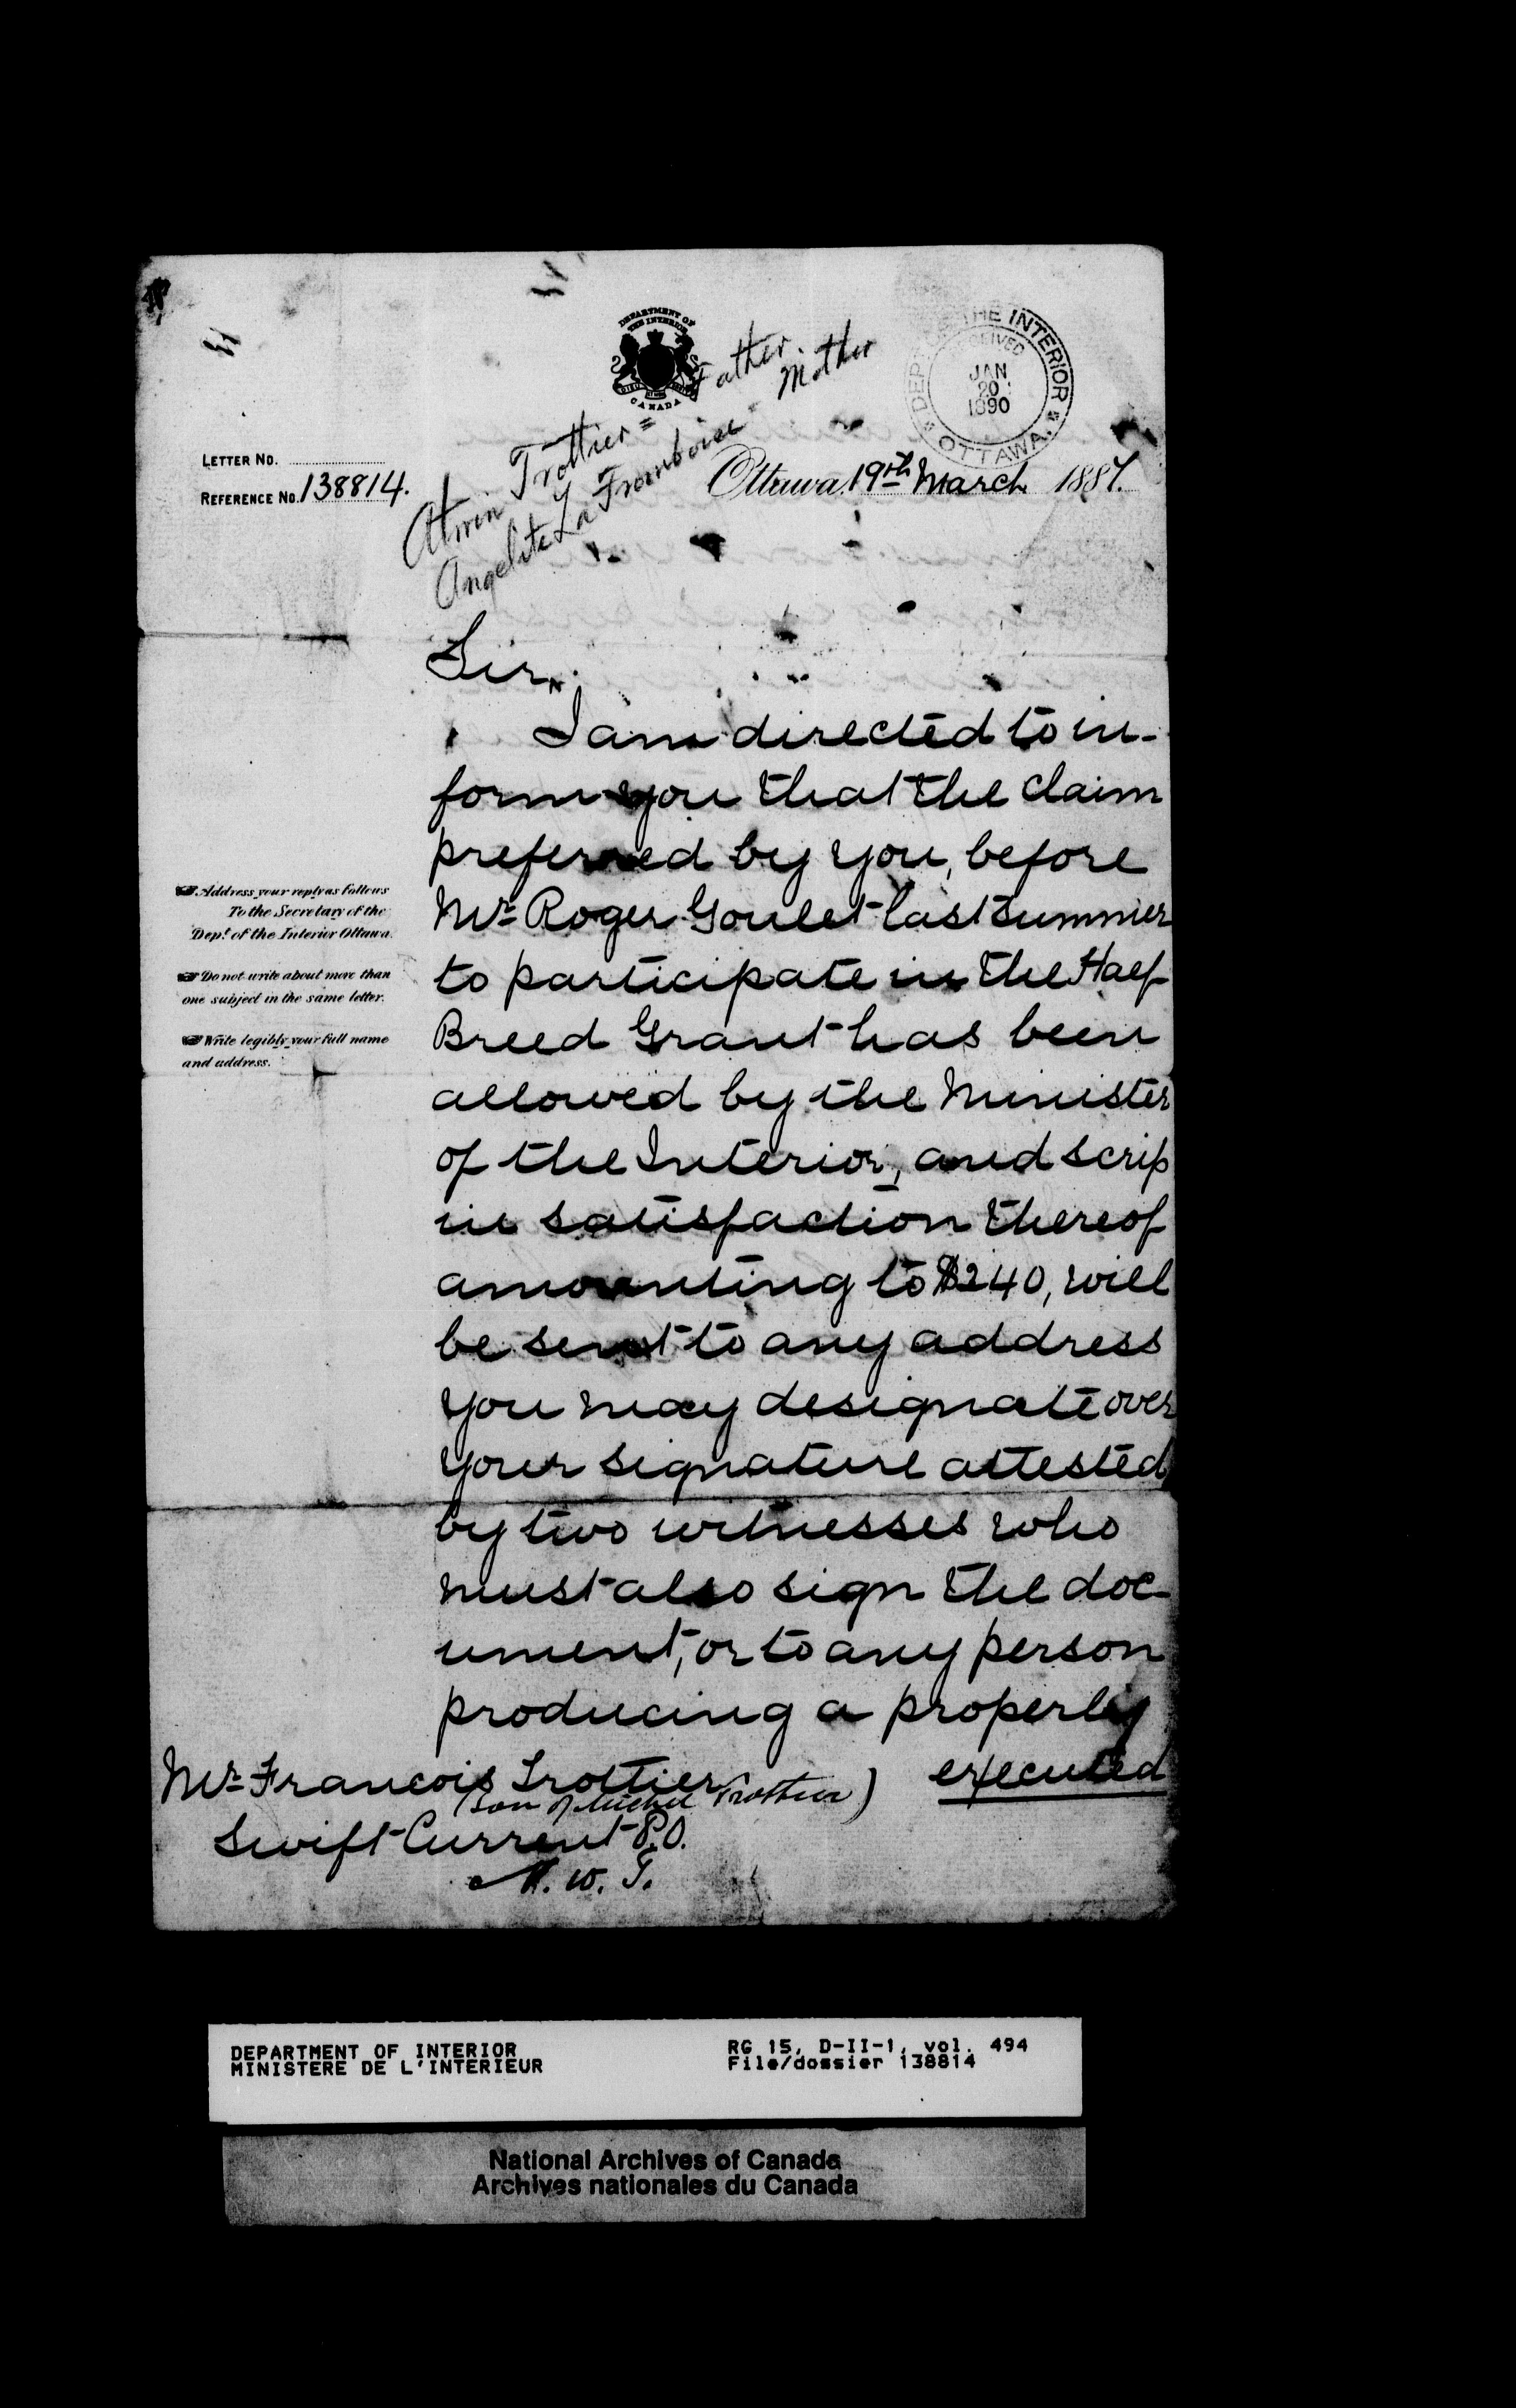 DEPARTMENT OF
THE INTERIOR
CANADA
DEPT. OF THE INTERIOR
RECEIVED
JAN
20
1890
OTTAWA.
Trottier = Father.
Angelite La Framboise Mother
LETTER No.
REFERENCE No. 138814.
Ottawa, 19th March 1887.
Sir,
I am directed to in-
form you that the claim
preferred by you, before
Mr. Roger Goulet last summer
to participate in the Half
Breed Grant has been
allowed by the Minister
of the Interior, and scrip
in satisfaction thereof
amounting to $240, will
be sent to any address
you may designate over
your signature attested
by two witnesses who
must also sign the doc-
ument, or to any person
producing a properly
executed
Address your reply as follows
To the Secretary of the
Dept. of the Interior Ottawa.
Do not write about more than
one subject in the same letter.
Write legibly your full name
and address.
Mr. Francois Trottier
(Son of Michel Trottier)
Swift Current P.O.
N. W. T.
DEPARTMENT OF INTERIOR
MINISTERE DE L'INTERIEUR
RG 15, D-II-1, vol. 494
File/dossier 138814
National Archives of Canada
Archives nationales du Canada